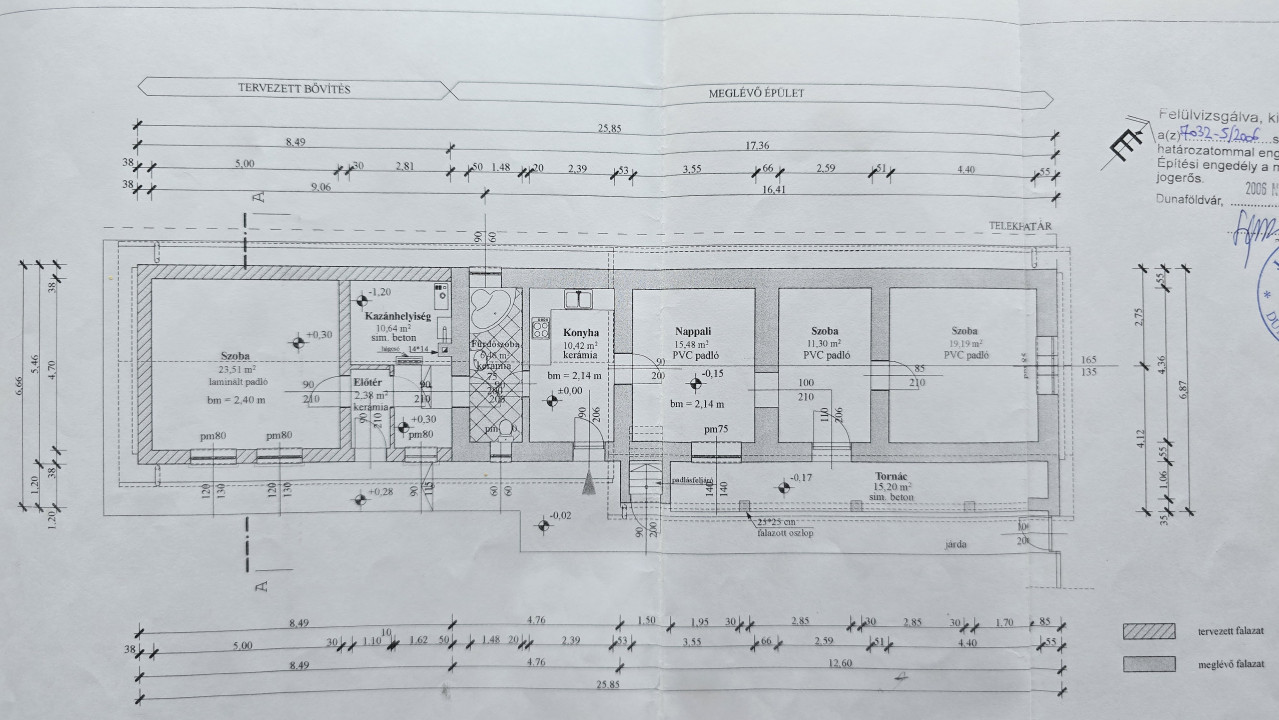 TERVEZETT BŐVÍTÉS
MEGLÉVŐ ÉPÜLET
25,85
8.49
17,36
38
5,00
30
2,81
50
1.48
20
2,39
53
3,55
66
2,59
51
4.40
55
38
9,06
16,41
Felülvizsgálva,
a(z) 7032-5/2006
határozatommal
Építési engedély a
jogerős.
2006
Dunaföldvár,
TELEKHATÁR
A
90
60
-1,20
Kazánhelyiség
10,64 m²
sim. beton
hágcsó 14*14
+0,30
Szoba
23,51 m²
laminált padló
bm = 2,40 m
90
210
Előtér
2,38 m²
kerámia
90
210
90
210
+0,30
pm80
pm80
pm80
Fürdőszoba
kerámia
Konyha
10,42 m²
kerámia
bm = 2,14 m
±0,00
90
206
Nappali
15,48 m²
PVC padló
90
200
-0,15
bm = 2,14 m
pm75
Szoba
11,30 m²
PVC padló
100
210
110
206
85
210
Szoba
19,19 m²
PVC padló
165
135
120
130
120
130
+0,28
90
115
60
60
-0,02
padlásfeljáró
140
140
90
200
-0,17
Tornác
15,20 m²
sim. beton
25*25 cm
falazott oszlop
járda
A
6,66
5,46
1,20
38
4,70
38
1,20
2,75
4.12
55
4,36
55
1,06
35
6,87
8.49
4.76
1.50
1,95
30
2,85
30
2,85
30
1.70
85
38
5,00
30
1.10
10
1.62
50
1.48
20
2.39
53
3,55
66
2,59
51
4.40
55
8.49
4.76
12.60
25.85
tervezett falazat
meglévő falazat